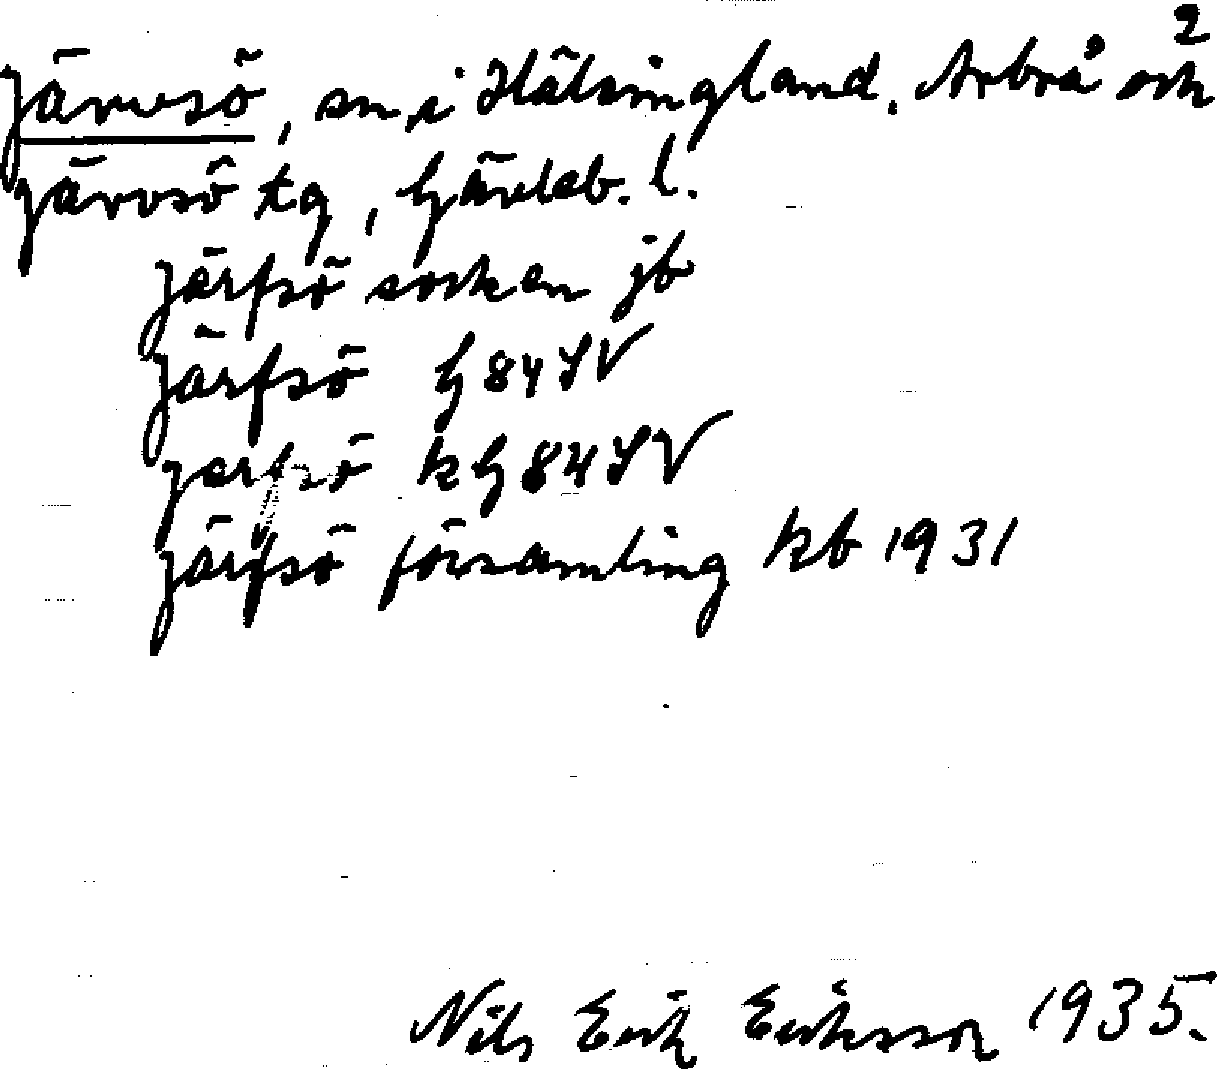 2
Järvsö, sn i Hälsingland. Arbrå och
Järvsö tg, Gävleb. l.
Järfsö socken jb
Järfsö G 84 SV
Järfsö kG 84 SV
Järfsö församling kb 1931
Nils Erik Eriksson 1935.